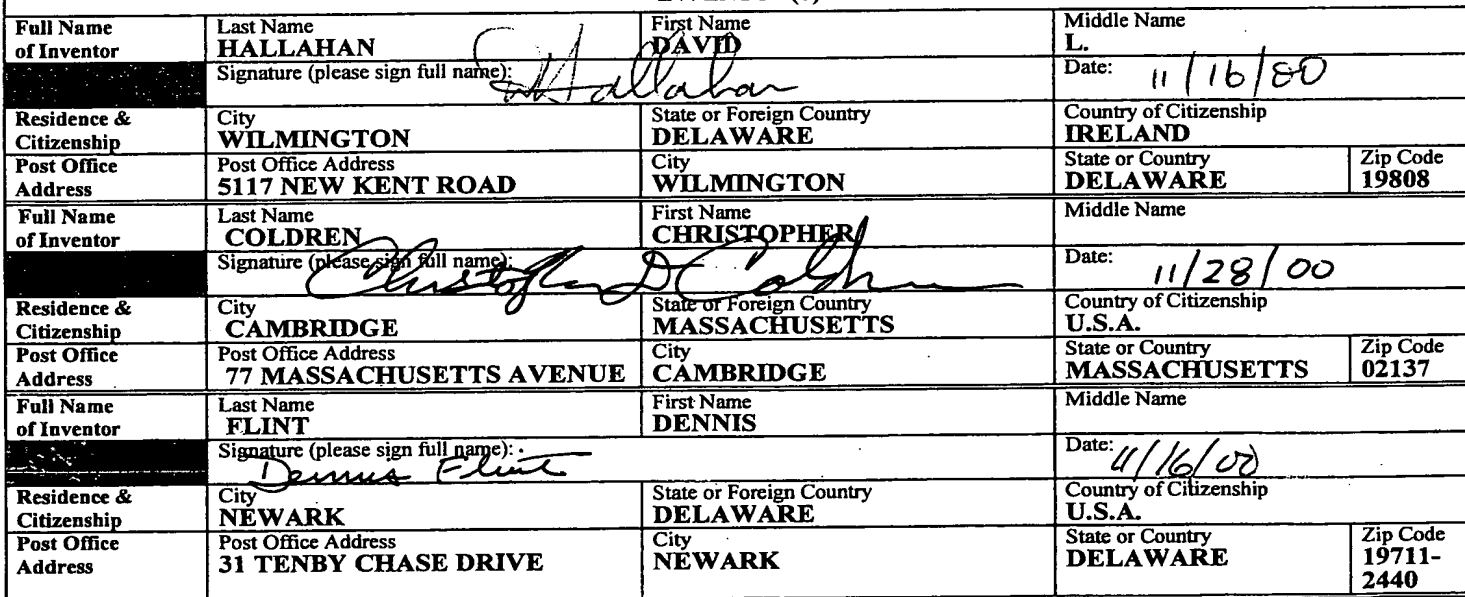 Full Name of Inventor Last Name HALLAHAN First Name DAVID Middle Name L.
Signature (please sign full name): Hallahan Date: 11/16/00
Residence & Citizenship City WILMINGTON State or Foreign Country DELAWARE Country of Citizenship IRELAND
Post Office Address Post Office Address 5117 NEW KENT ROAD City WILMINGTON State or Country DELAWARE Zip Code 19808
Full Name of Inventor Last Name COLDREN First Name CHRISTOPHER Middle Name
Signature (please sign full name): Christopher D Coldren Date: 11/28/00
Residence & Citizenship City CAMBRIDGE State or Foreign Country MASSACHUSETTS Country of Citizenship U.S.A.
Post Office Address Post Office Address 77 MASSACHUSETTS AVENUE City CAMBRIDGE State or Country MASSACHUSETTS Zip Code 02137
Full Name of Inventor Last Name FLINT First Name DENNIS Middle Name
Signature (please sign full name): Dennis Flint Date: 11/16/00
Residence & Citizenship City NEWARK State or Foreign Country DELAWARE Country of Citizenship U.S.A.
Post Office Address Post Office Address 31 TENBY CHASE DRIVE City NEWARK State or Country DELAWARE Zip Code 19711-2440